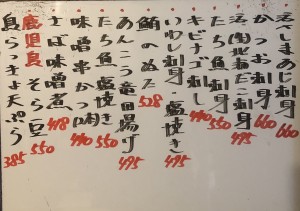 活〆しまあじ刺身 660
かつお刺身 660
北海たこ刺身 495
たち魚刺身 550
キビナゴ刺し 440
いわし刺身・塩焼き 495
鮪のぬた 528
あんこう竜田揚げ 495
たち魚塩焼き 550
味噌串かつ 440
さば味噌煮 418
鹿児島そら豆 550
島らっきょ天ぷら 385